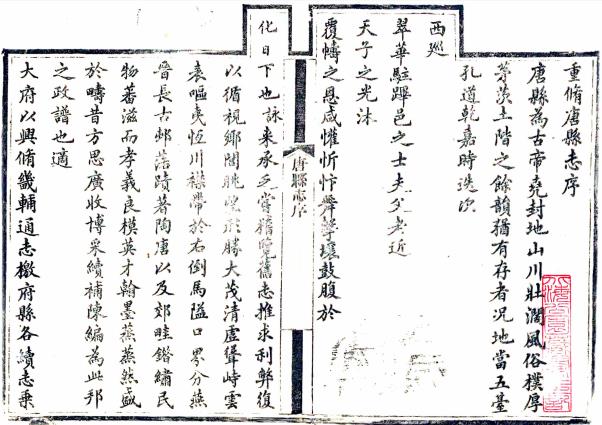 重脩唐縣志序
唐縣為古帝堯封地山川壯濶風俗樸厚
茅茨土階之餘韻猶有存者況地當五臺
孔道乾嘉時迭次
西巡
翠華駐蹕邑之士夫父老近
天子之光沐
覆幬之恩咸懽忻忭舞擊壤鼓腹於
唐縣志序
化日下也詠來承乏嘗稽覽舊志推求利弊復
以循視鄉閭眺覽形勝大茂清虛聳峙雲
表嘔夷恆川襟帶於右倒馬隘口界分燕
晉長古邨落蹟著陶唐以及郊畦錯繡民
物蕃滋而孝義良模英才翰墨蒸蒸然盛
於疇昔方思廣收博采續補陳編為此邦
之政譜也適
大府以興脩畿輔通志檄府縣各續志乘